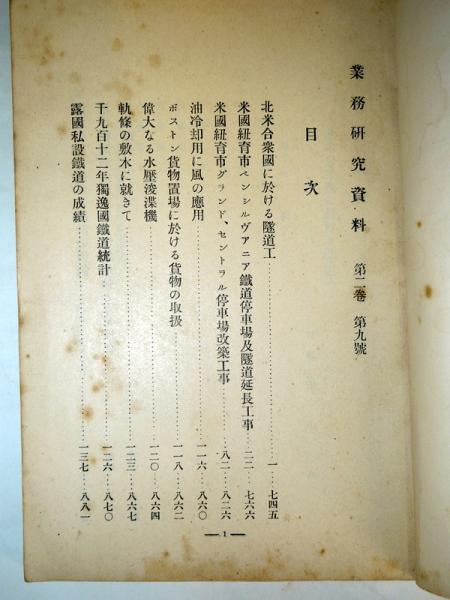 業務研究資料 第二卷 第九號
目次
北米合衆國に於ける隧道工……一…七四五
米國紐育市ペンシルヴアニア鐵道停車場及隧道延長工事……二二…七六六
米國紐育市グランド、セントラル停車場改築工事……八二…八二六
油冷却用に風の應用……一一六…八六〇
ボストン貨物置場に於ける貨物の取扱……一一八…八六二
偉大なる水壓浚渫機……一二〇…八六四
軌條の敷木に就きて……一二三…八六七
千九百十二年獨逸國鐵道統計……一二六…八七〇
露國私設鐵道の成績……一三七…八八一
—1—